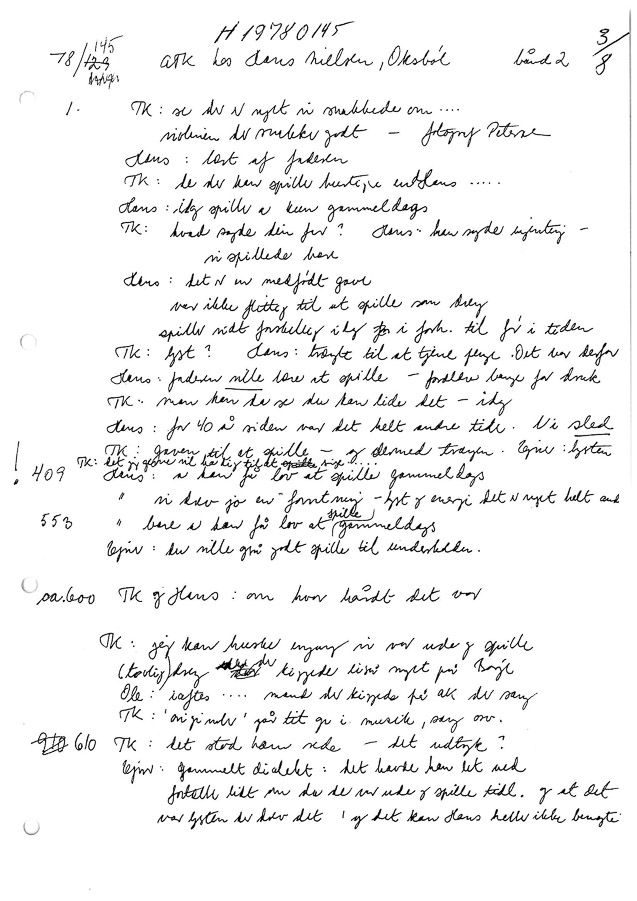 H 19780145
3/8
78/145
ATK hos Hans Nielsen, Oksbøl bånd 2
1. TK: se der er nyt vi snakkede om ....
violinen der snakker godt — fotograf Petersen
Hans: lært af faderen
TK: de der kan spille Hans .....
Hans: idag spiller a kun gammeldags
TK: hvad sagde din far? Hans: han sagde ingenting —
vi spillede bare
Hans: det er en medfødt gave
var ikke flittig til at spille som dreng
spiller vidt forskellig idag i forh. til før i tiden
TK: lyst? Hans: trangte til at tjene penge. Det var derfor
Hans: faderen ville lære at spille — forældre bange for druk
TK: man kan da se du kan lide det — idag
Hans: for 40 år siden var det helt andre tider. Vi sled
TK: gaven til at spille — og dermed trangen. Ejnar: lysten
TK: det jeg gerne vil have dig til at ....
! 409 Hans: a kan få lov at spille gammeldags
" vi drev jo en forretning — lyst og energi det er nyt helt and
553 " bare a kan få lov at spille gammeldags
Ejnar: du ville godt spille til underholdn.
ca. 600 TK og Hans: om hvor hårdt det var
TK: jeg kan huske engang vi var ude og spille
dreng kiggede nyt på
Ole: iaftes .... mand der kiggede på ATK der sang
TK: 'originaler' går tit op i musik, sang osv.
610 TK: det stod ham nede — det udtryk?
Ejnar: gammelt dialekt: det havde han let ved
fortælle lidt om da de var ude og spille tidl. og at det
var lysten der drev det ' og det kan Hans heller ikke benægte